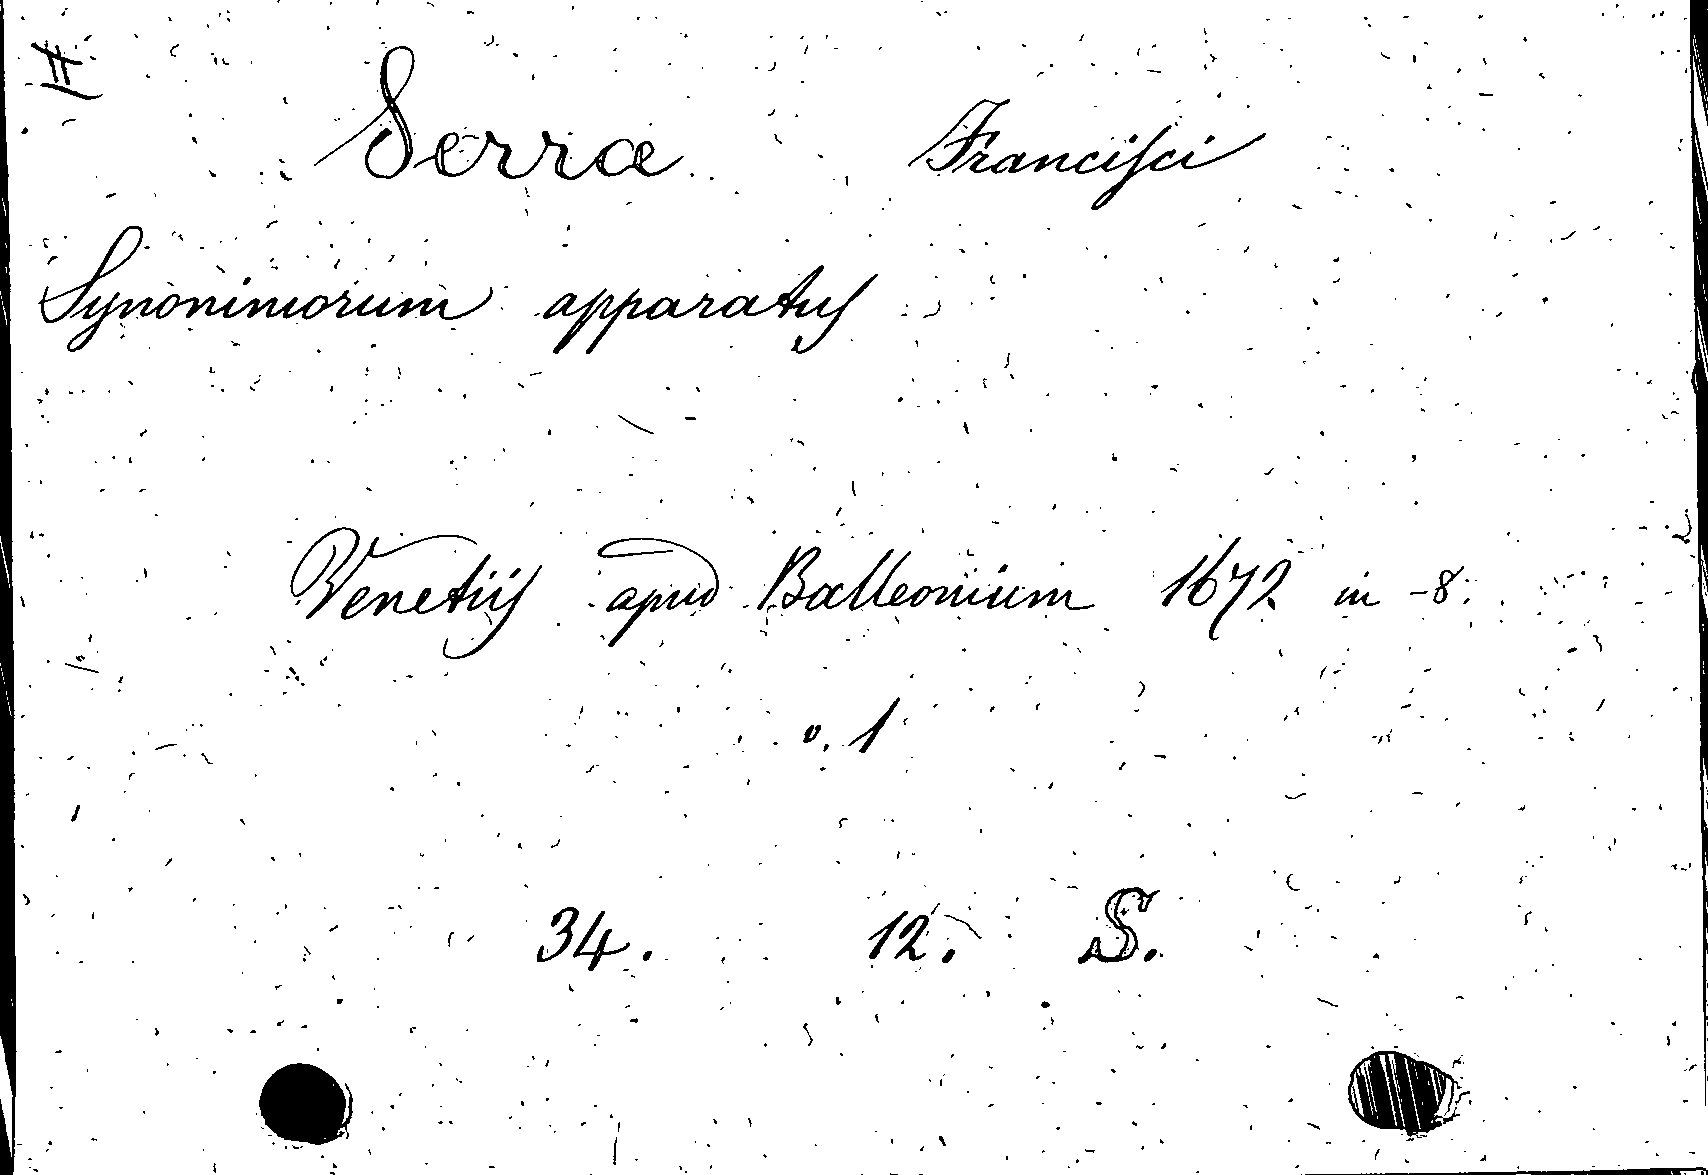 II
Serræ Francisci
Synonimorum apparatus
Venetiis apud Balleonium 1672 in -8.
v. 1
34. 12. S.